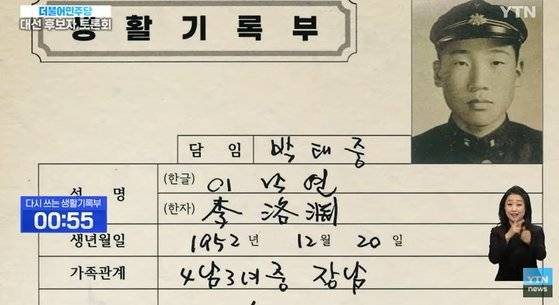 더불어민주당
대선 후보자 토론회
YTN
생활기록부
담임 박태중
성명 (한글) 이낙연
(한자) 李洛淵
다시 쓰는 생활기록부
00:55
생년월일 1952년 12월 20일
가족관계 4남3녀 중 장남
YTN
news